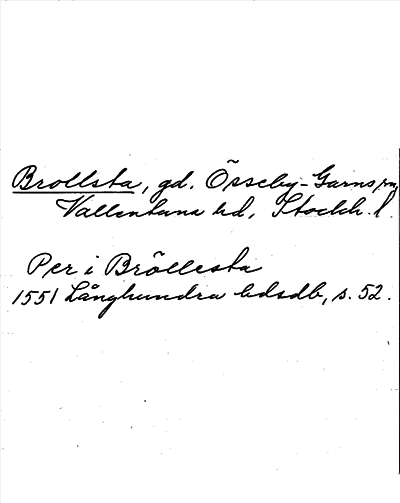 Brollsta, gd. Össeby-Garns sn,
Vallentuna hd, Stockh. l.
Per i Bröllesta
1551 Långhundra hdsdb, s. 52.